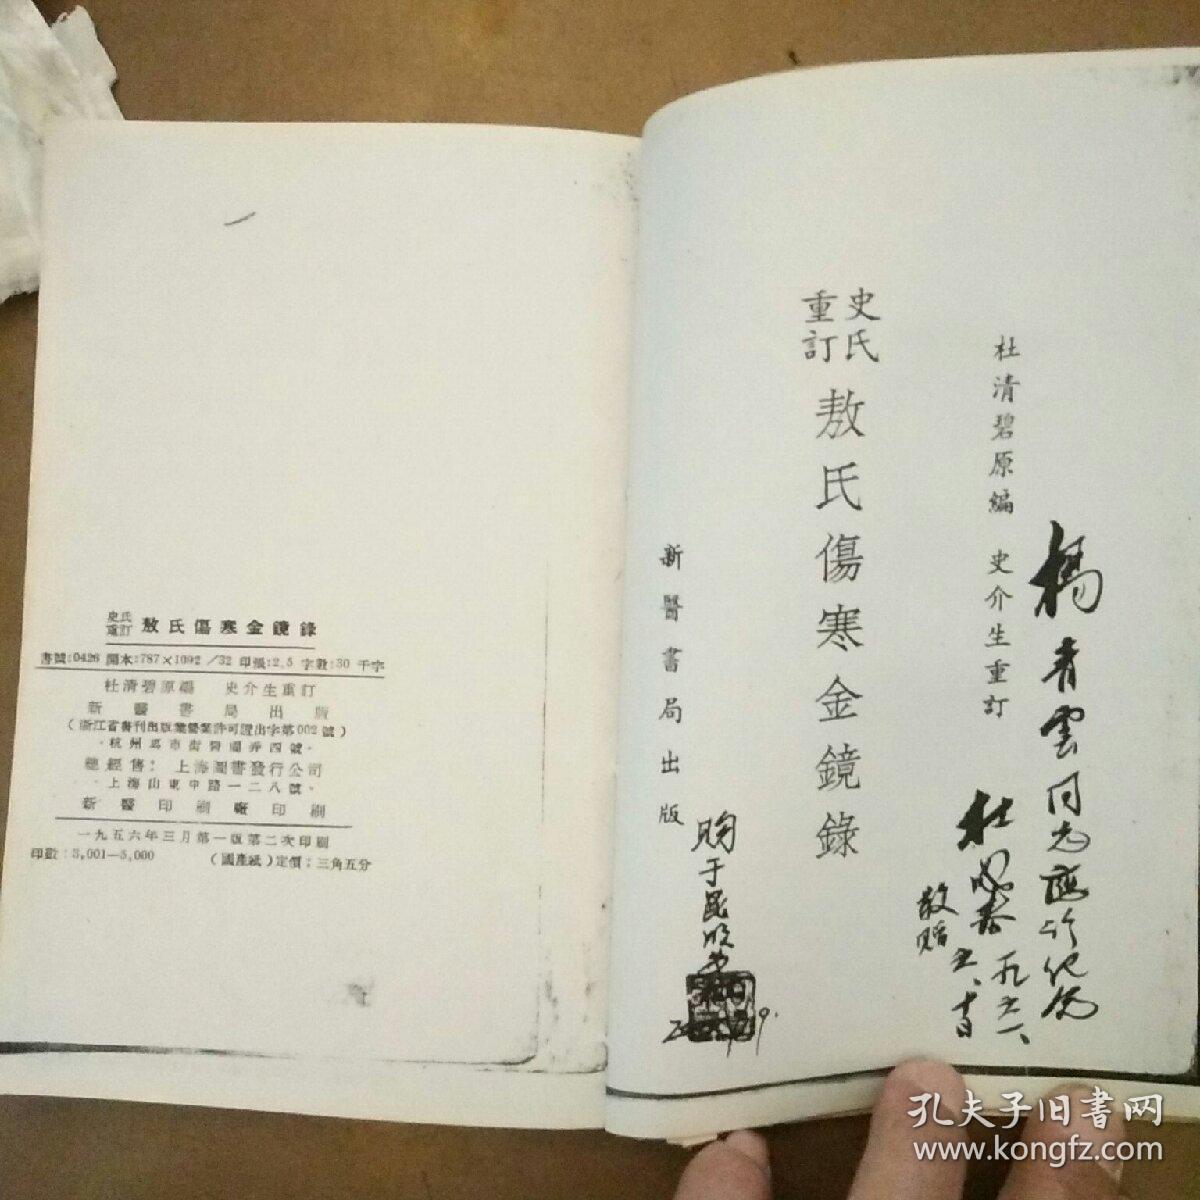 史氏
重訂
敖氏傷寒金鏡錄
書號:0426 開本:787×1092/32 印張:2.5 字數:30千字
杜清碧原編 史介生重訂
新醫書局出版
(浙江省書刊出版業營業許可證出字第002號)
總經售: 上海圖書發行公司
上海山東中路一二八號
新醫印刷廠印刷
一九五六年三月第一版第二次印刷
印數:3,001—5,000 (國產紙)定價:三角五分
杜清碧原編 史介生重訂
史氏
重訂
敖氏傷寒金鏡錄
新醫書局出版
楊青雲同志
敬贈
购于
孔夫子旧书网
www.kongfz.com